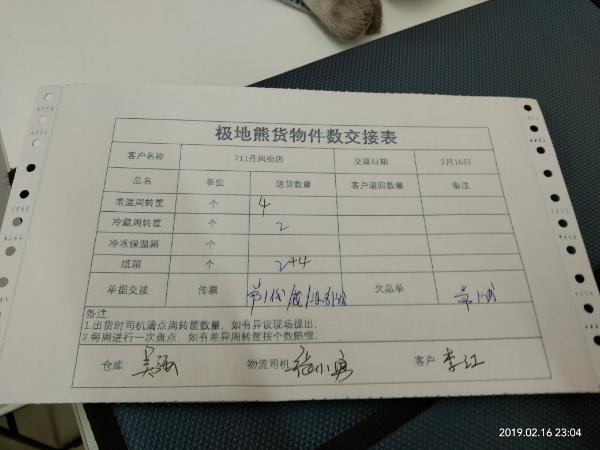 极地熊货物件数交接表
客户名称 711丹凤街店 交接日期 2月16日
品名 单位 送货数量 客户退回数量 备注
常温周转筐 个 4
冷藏周转筐 个 2
冷冻保温箱 个
纸箱 个 2+4
单据交接 传票 欠品单
备注:
1.出货时司机清点周转筐数量,如有异议现场提出.
2.每周进行一次盘点,如有差异周转筐按个数赔偿.
仓库 吴强 物流司机 张小勇 客户 李江
2019.02.16 23:04